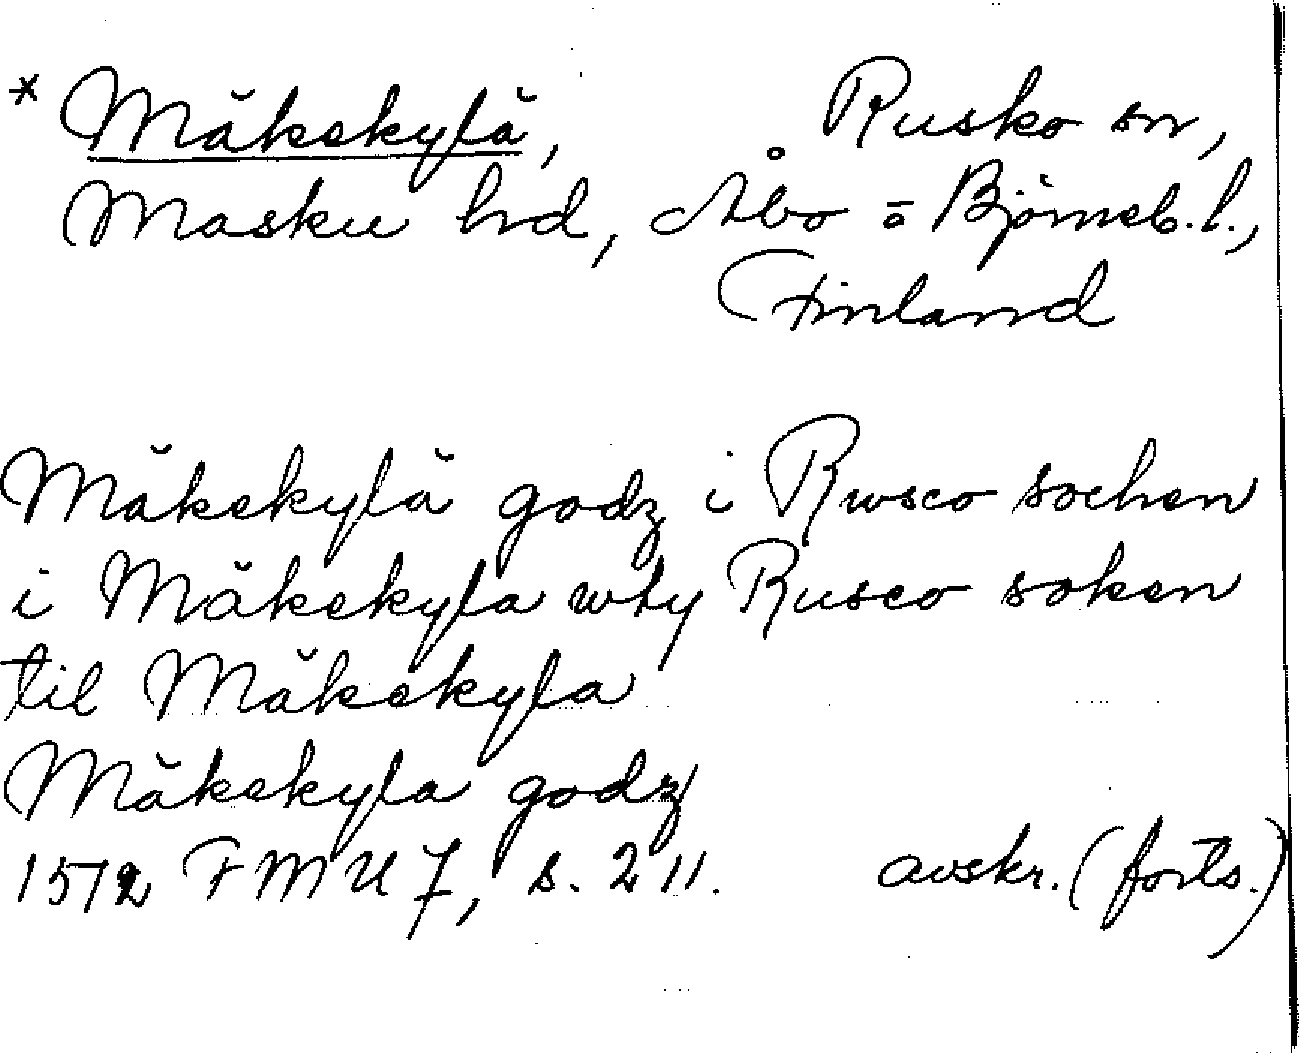 * Mäkekylä, Rusko sn,
Masku hd, Åbo = Björneb. l.,
Finland
Mäkekylä godz i Rwsco sochen
i Mäkekyla wty Rusco soken
til Mäkekyla
Mäkekyla godz
1512 FMU 7, s. 211. avskr. (forts.)